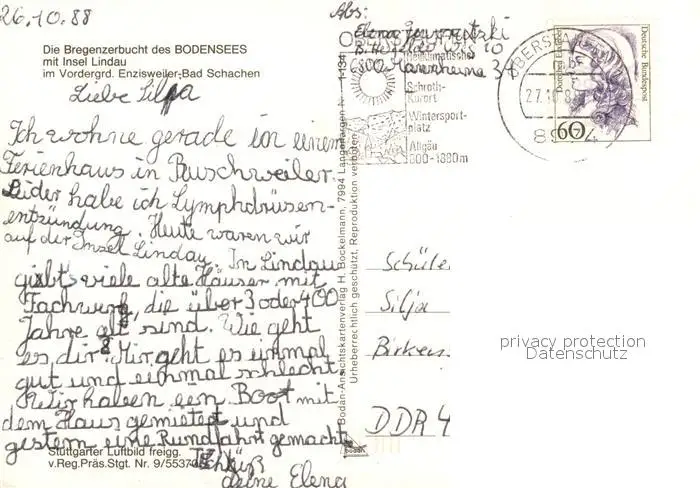 26.10.88
Die Bregenzerbucht des BODENSEES
mit Insel Lindau
im Vordergrd. Enzisweiler-Bad Schachen
Liebe Silja
Ich wohne gerade in einem
Ferienhaus in Ruschweiler.
Leider habe ich Lymphdrüsen-
entzündung. Heute waren wir
auf der Insel Lindau. In Lindau
gibt's viele alte Häuser mit
Fachwerk, die über 3 oder 400
Jahre alt sind. Wie geht
es dir? Mir geht es einmal
gut und einmal schlecht.
Wir haben ein Boot mit
dem Haus gemietet und
gestern eine Rundfahrt gemacht.
Tschüß
deine Elena
Stuttgarter Luftbild freigg.
v.Reg.Präs.Stgt. Nr. 9/5537
Abs:
Elena
10
6800 Mannheim 31
1-134
Bodan-Ansichtskartenverlag H. Bockelmann, 7994 Langenargen
Urheberrechtlich geschützt, Reproduktion verboten
Heilklimatischer
Schroth-
Kurort
Wintersport-
platz
Allgäu
800-1880m
OBERSTAUFEN
bf
27.10.8
89 4
Deutsche Bundespost
Dorothea Erxleben
60
Schüle
Silja
Birken
DDR 4
privacy protection
Datenschutz